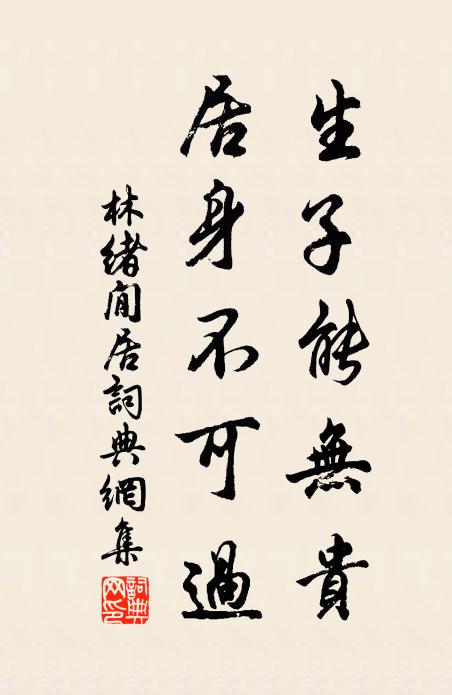 生子能無貴
居身不可過
林緒閒居詞典網集
詞典